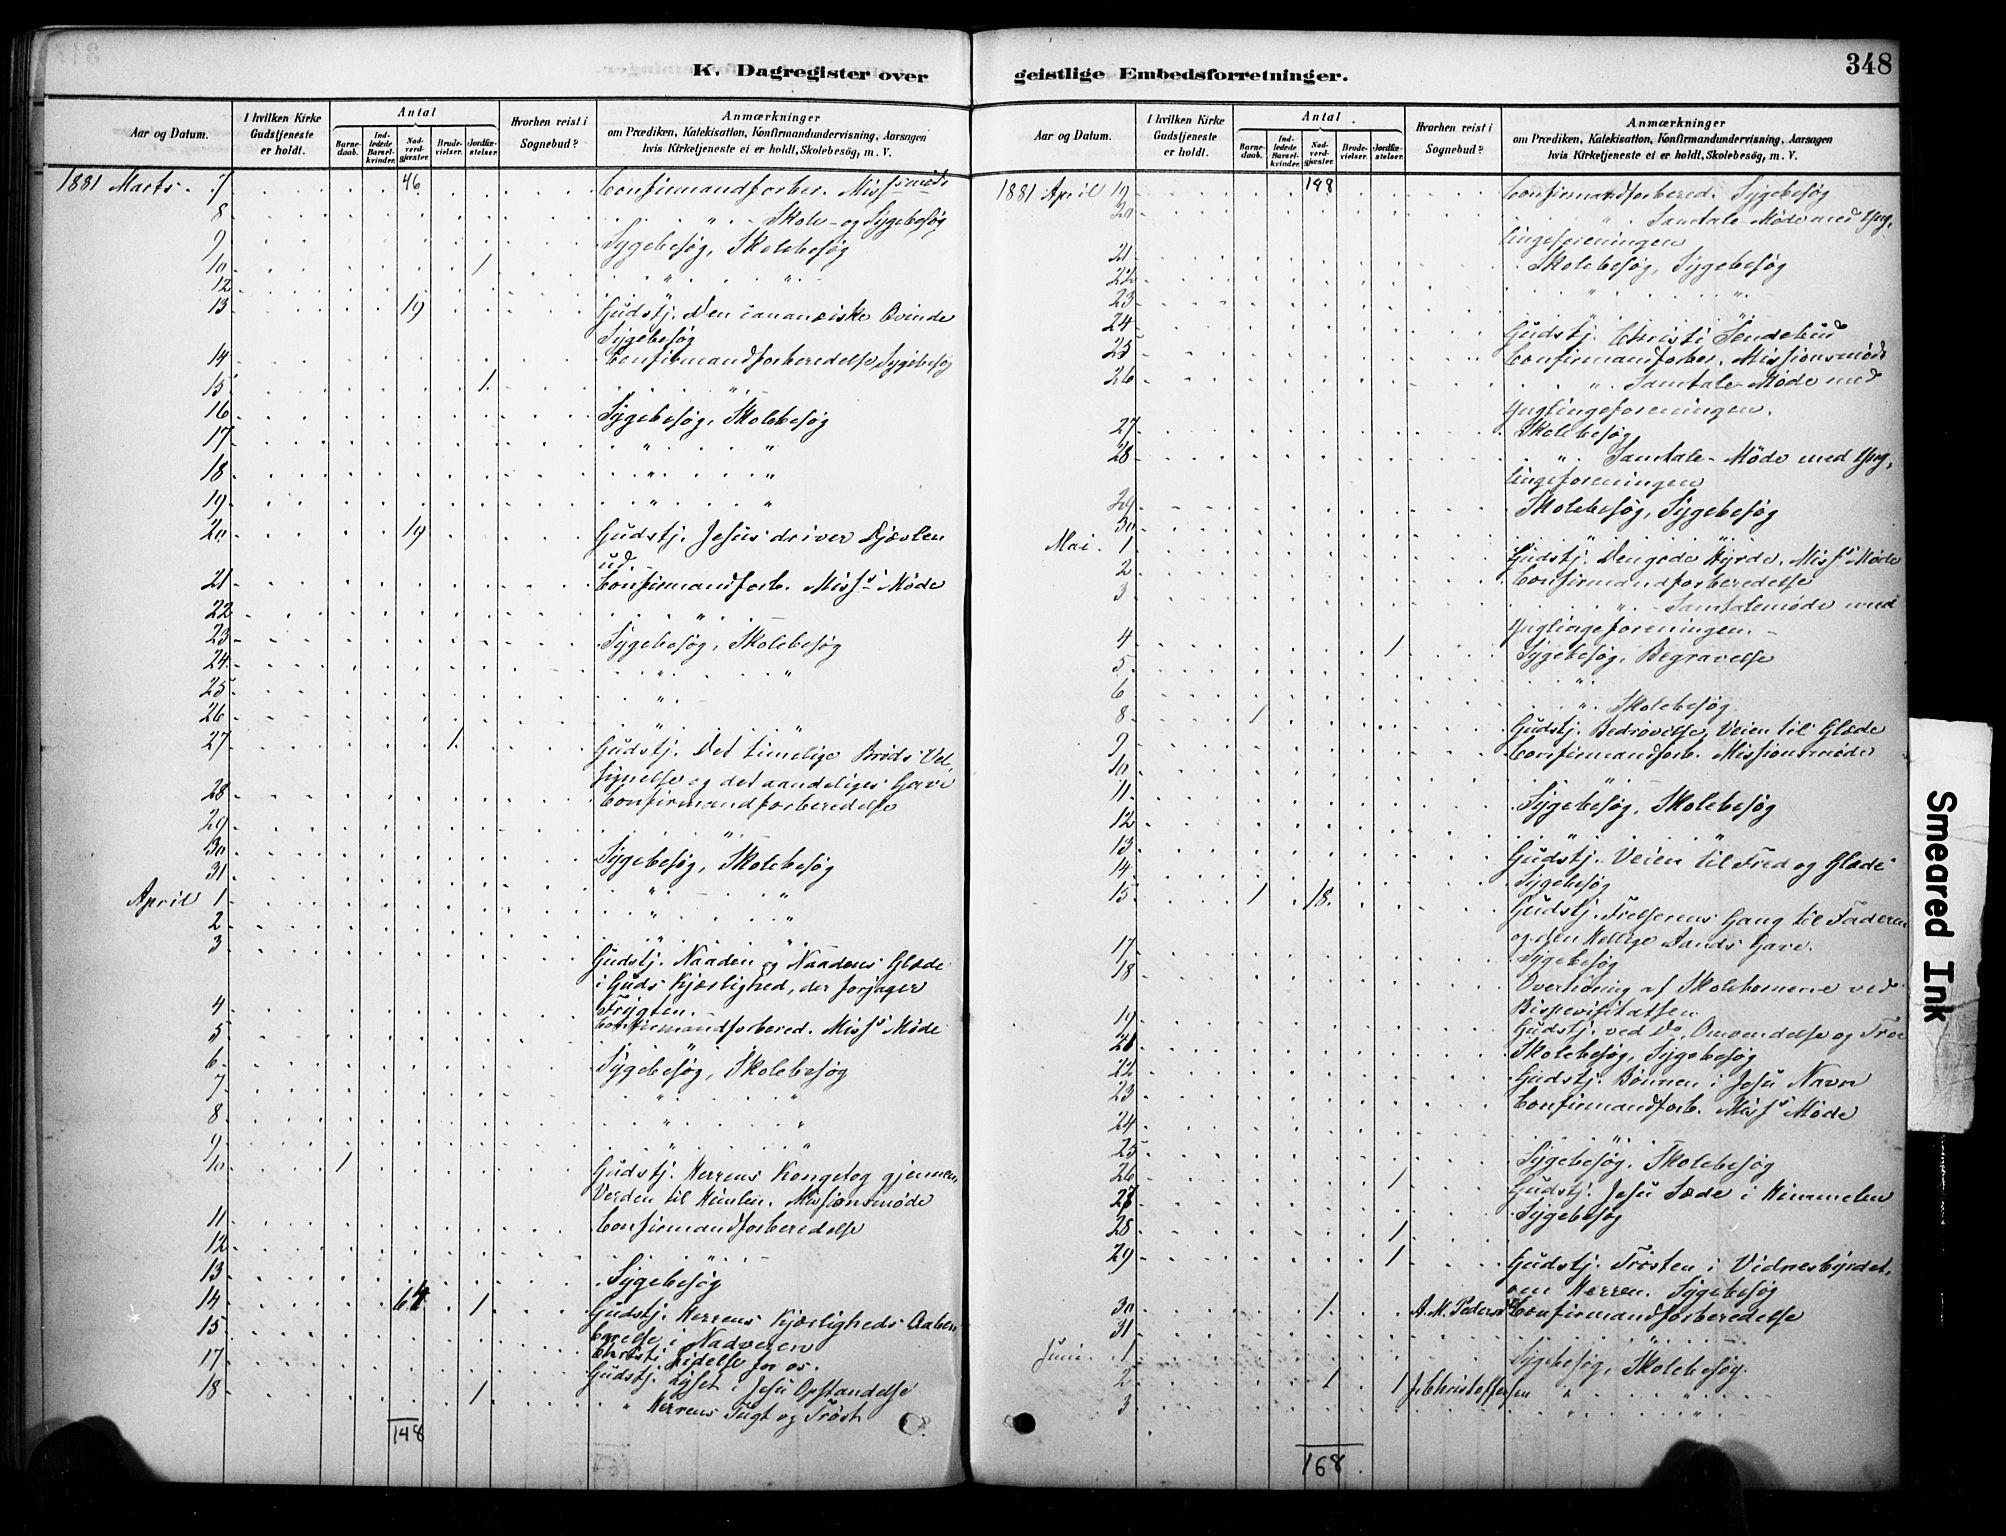 K. Dagregister over
Aar og Datum.
I hvilken Kirke Gudstjeneste er holdt.
Antal
Barnedaab.
Indledede Barselkvinder.
Nadverdgjæster.
Brudevielser.
Jordfæstelser.
Hvorhen reist i Sognebud?
Anmærkninger
om Prædiken, Katekisation, Konfirmandundervisning, Aarsagen
hvis Kirketjeneste ei er holdt, Skolebesög, m. V.
1881 Marts. 7 46 Confirmandforber. Miss.møde
8 " Skole- og Sygebesøg
9 Sygebesøg, Skolebesøg
10 1 " "
12
13 19 Gudstj. Den cananæiske Qvinde
Sygebesøg
14 Confirmandforberedelse, Sygebesøg
15 1. "
16 Sygebesøg, Skolebesøg
17 " "
18 " "
19 " "
20 19 Gudstj. Jesus driver Djævlen
ud.
21 Confirmandforb. Miss.s Møde
22 "
23 Sygebesøg, Skolebesøg
24 " "
25 "
26 " "
27 1. Gudstj. Det timelige Brøds Vel-
signelse og det aandeliges Gave
28 Confirmandforberedelse
29 "
30 Sygebesøg, Skolebesøg
31 " "
April 1 " "
2 " "
3 Gudstj. Naaden og Naadens Glæde
i Guds Kjærlighed, der forjager
Frygten.
4 Confirmandforbered. Miss.s Møde
5 "
6 Sygebesøg, Skolebesøg
7 " "
8 " "
9 " "
10 1 Gudstj. Herrens Kongetog gjennem
Verden til Himlen. Missionsmøde
11 Confirmandforberedelse
12 "
13 Sygebesøg
14 64 1 Gudstj. Herrens Kjærligheds Aaben-
barelse i Nadveren
15 Christi Lidelse for os.
17 Gudstj. Lyset i Jesu Opstandelse
18 1 " Herrens Tugt og Trøst
148
geistlige Embedsforretninger.
348
Aar og Datum.
I hvilken Kirke Gudstjeneste er holdt.
Antal
Barnedaab.
Indledede Barselkvinder.
Nadverdgjæster.
Brudevielser.
Jordfæstelser.
Hvorhen reist i Sognebud?
Anmærkninger
om Prædiken, Katekisation, Konfirmandundervisning, Aarsagen
hvis Kirketjeneste ei er holdt, Skolebesög, m. V.
1881 April 19 148 Confirmandforbered. Sygebesøg
20 " Samtale-Møde med Yng-
lingeforeningen
21 Skolebesøg, Sygebesøg
22 " "
23 " "
24 Gudstj. Christi Sendebud
25 Confirmandforber. Missionsmøde
26 " Samtale-Møde med
Ynglingeforeningen.
27 Skolebesøg
28 " Samtale-Møde med Yng-
lingeforeningen
29 Skolebesøg, Sygebesøg
30 "
Mai. 1 Gudstj. Den gode Hyrde. Miss.s Møde
2 Confirmandforberedelse
3 " Samtalemøde med
Ynglingeforeningen.
4 1 Sygebesøg, Begravelse
5 "
6 " Skolebesøg
8 1 Gudstj. Bedrøvelse, Veien til Glæde
9 Confirmandforb. Missionsmøde
10 "
11 Sygebesøg, Skolebesøg
12 " "
13
14 Gudstj. Veien til Fred og Glæde
Sygebesøg
15 1 18. Gudstj. Frelserens Gang til Faderen
og den Hellige Aands Gave.
17 Sygebesøg
18 Overhøring af Skolebørnene ved
Bispevisitatsen
19 Gudstj. ved Do. Omvendelse og Tro
20 Skolebesøg, Sygebesøg
22 Gudstj. Bønnen i Jesu Navn
23 Confirmandforb. Miss.s Møde
24 "
25 Sygebesøg. Skolebesøg
26 1 Gudstj. Jesu Sæde i Himmelen
27 Sygebesøg
28 1
29 1 Gudstj. Trøsten i Vidnesbyrdet
om Herren. Sygebesøg
30 1. A. M. Peders Confirmandforberedelse
31 "
Juni. 1 Sygebesøg, Skolebesøg.
2 1 1 J. Christoffersen " "
3 " "
168
Smeared Ink